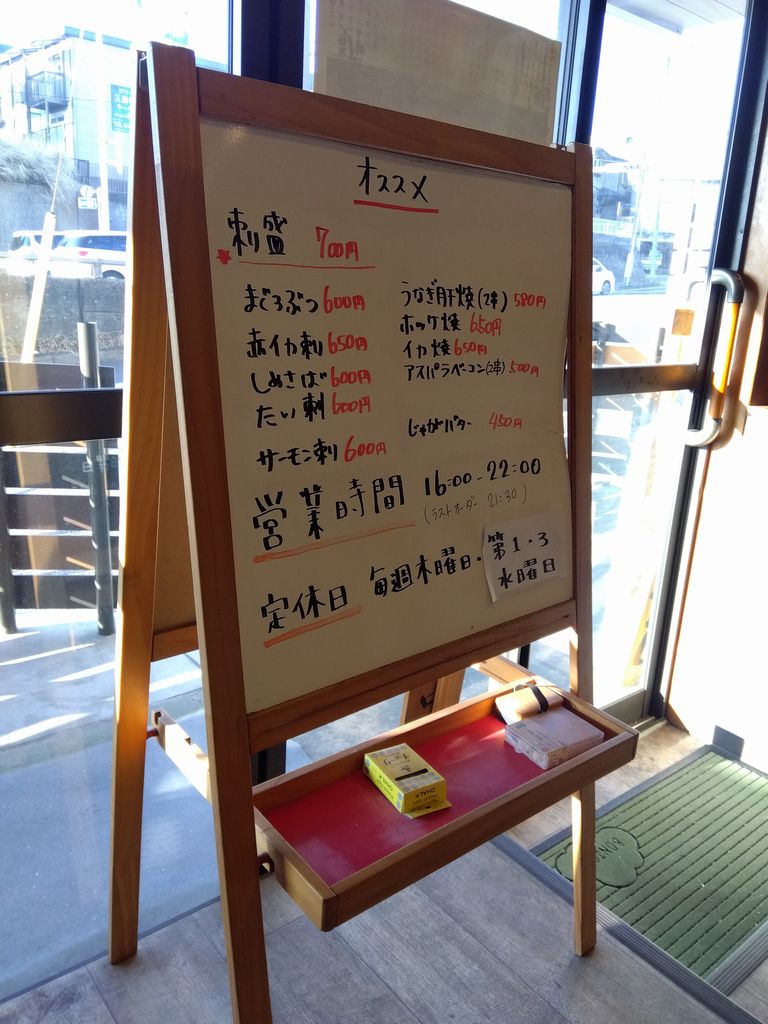 オススメ
刺盛 700円
まぐろぶつ 600円
赤イカ刺 650円
しめさば 600円
たい刺 600円
サーモン刺 600円
うなぎ肝焼(2串) 580円
ホッケ焼 650円
イカ焼 650円
アスパラベーコン(2串) 500円
じゃがバター 450円
営業時間 16:00-22:00
(ラストオーダー 21:30)
定休日 毎週木曜日・第1・3
水曜日
CHALK